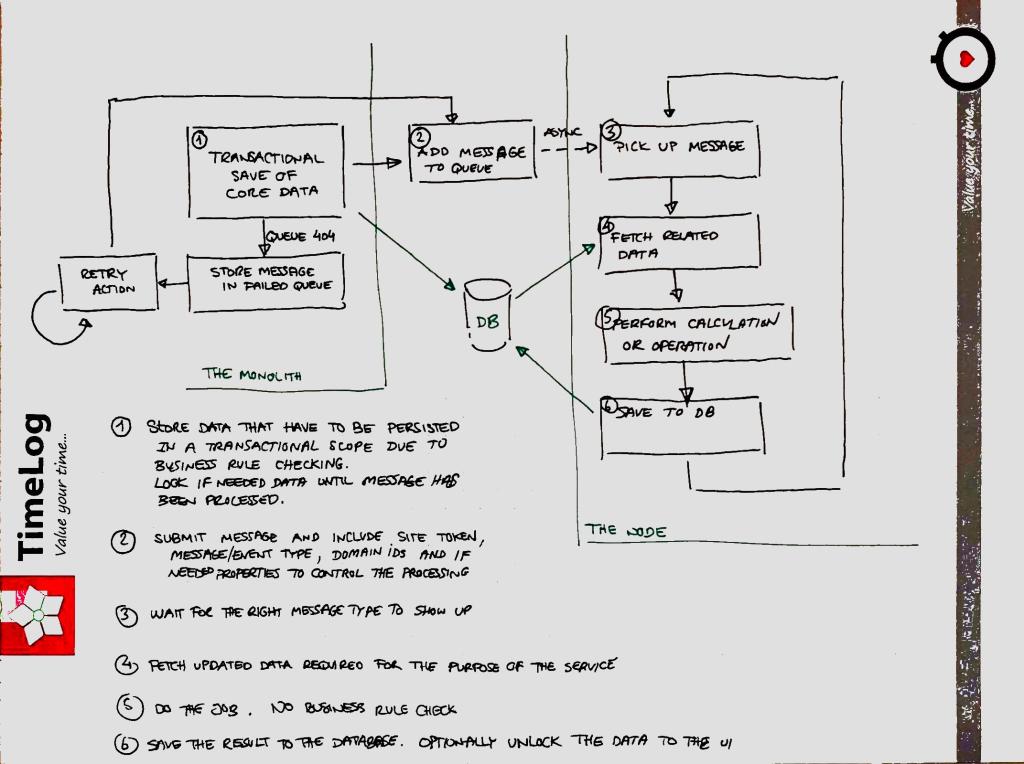 ①
TRANSACTIONAL
SAVE OF
CORE DATA
②
ADD MESSAGE
TO QUEUE
ASYNC
③
PICK UP MESSAGE
QUEUE 404
④
FETCH RELATED
DATA
RETRY
ACTION
STORE MESSAGE
IN FAILED QUEUE
DB
⑤
PERFORM CALCULATION
OR OPERATION
THE MONOLITH
⑥
SAVE TO DB
THE NODE
① STORE DATA THAT HAVE TO BE PERSISTED
IN A TRANSACTIONAL SCOPE DUE TO
BUSINESS RULE CHECKING.
LOCK IF NEEDED DATA UNTIL MESSAGE HAS
BEEN PROCESSED.
② SUBMIT MESSAGE AND INCLUDE SITE TOKEN,
MESSAGE/EVENT TYPE, DOMAIN IDS AND IF
NEEDED PROPERTIES TO CONTROL THE PROCESSING
③ WAIT FOR THE RIGHT MESSAGE TYPE TO SHOW UP
④ FETCH UPDATED DATA REQUIRED FOR THE PURPOSE OF THE SERVICE
⑤ DO THE JOB. NO BUSINESS RULE CHECK
⑥ SAVE THE RESULT TO THE DATABASE. OPTIONALLY UNLOCK THE DATA TO THE UI
TimeLog
Value your time...
Value your time...